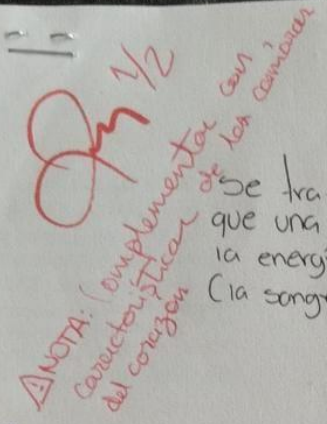 1/2
⚠NOTA: Complementar con
características de las cámaras
del corazón
Se tra
que una
la energí
(la sangr